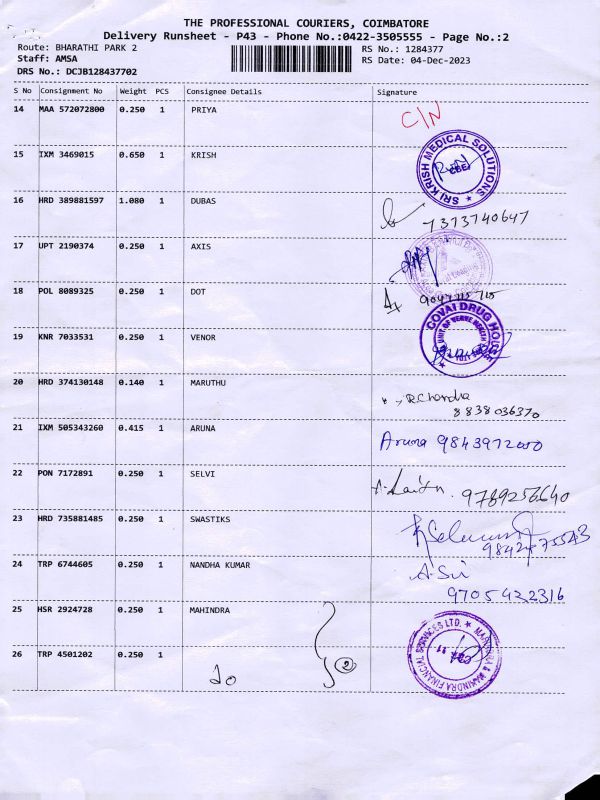 THE PROFESSIONAL COURIERS, COIMBATORE
Delivery Runsheet - P43 - Phone No.:0422-3505555 - Page No.:2
Route: BHARATHI PARK 2
RS No.: 1284377
Staff: AMSA
RS Date: 04-Dec-2023
DRS No.: DCJB128437702
S No Consignment No Weight PCS Consignee Details Signature
14 MAA 572072800 0.250 1 PRIYA C/N
15 IXM 3469015 0.650 1 KRISH
SRI KRISH MEDICAL SOLUTIONS
CBE
16 HRD 389881597 1.080 1 DUBAS
7373740647
17 UPT 2190374 0.250 1 AXIS
18 POL 8089325 0.250 1 DOT
19 KNR 7033531 0.250 1 VENOR
COVAI DRUG HOUSE
20 HRD 374130148 0.140 1 MARUTHU
R.Chandra
8838036370
21 IXM 505343260 0.415 1 ARUNA
Aruna
22 PON 7172891 0.250 1 SELVI
9789256640
23 HRD 735881485 0.250 1 SWASTIKS
24 TRP 6744605 0.250 1 NANDHA KUMAR
A.Sri
9705422316
25 HSR 2924728 0.250 1 MAHINDRA
MAHINDRA & MAHINDRA FINANCIAL SERVICES LTD.
26 TRP 4501202 0.250 1
2